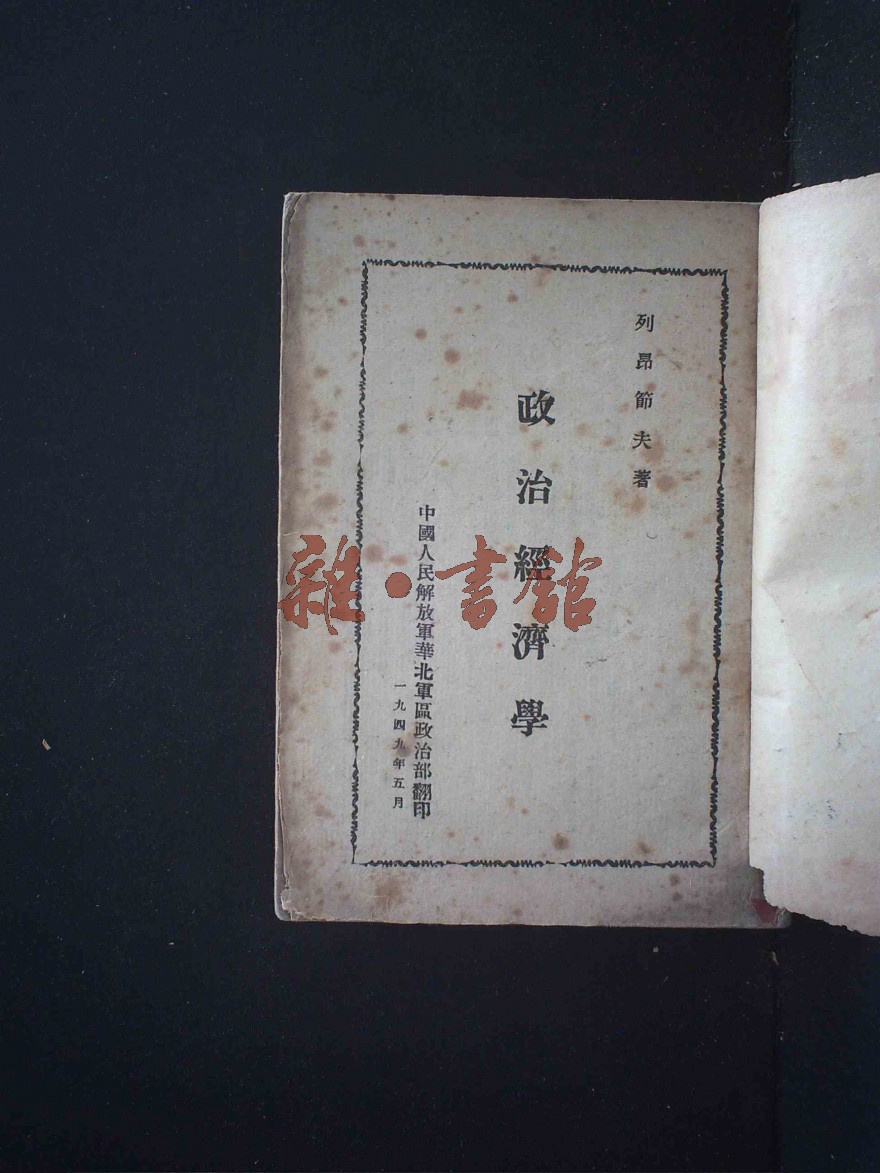 列昂節夫著
政治經濟學
中國人民解放軍華北軍區政治部翻印
一九四九年五月
雜·書館